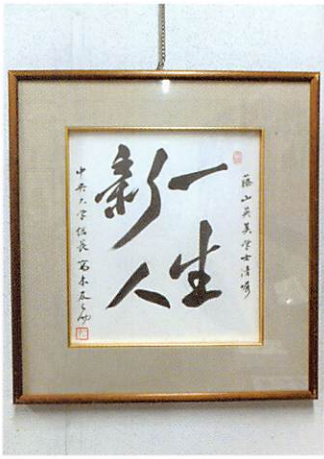 藤山英美学士清嘱
一生
新人
中央大学総長 高木友之助